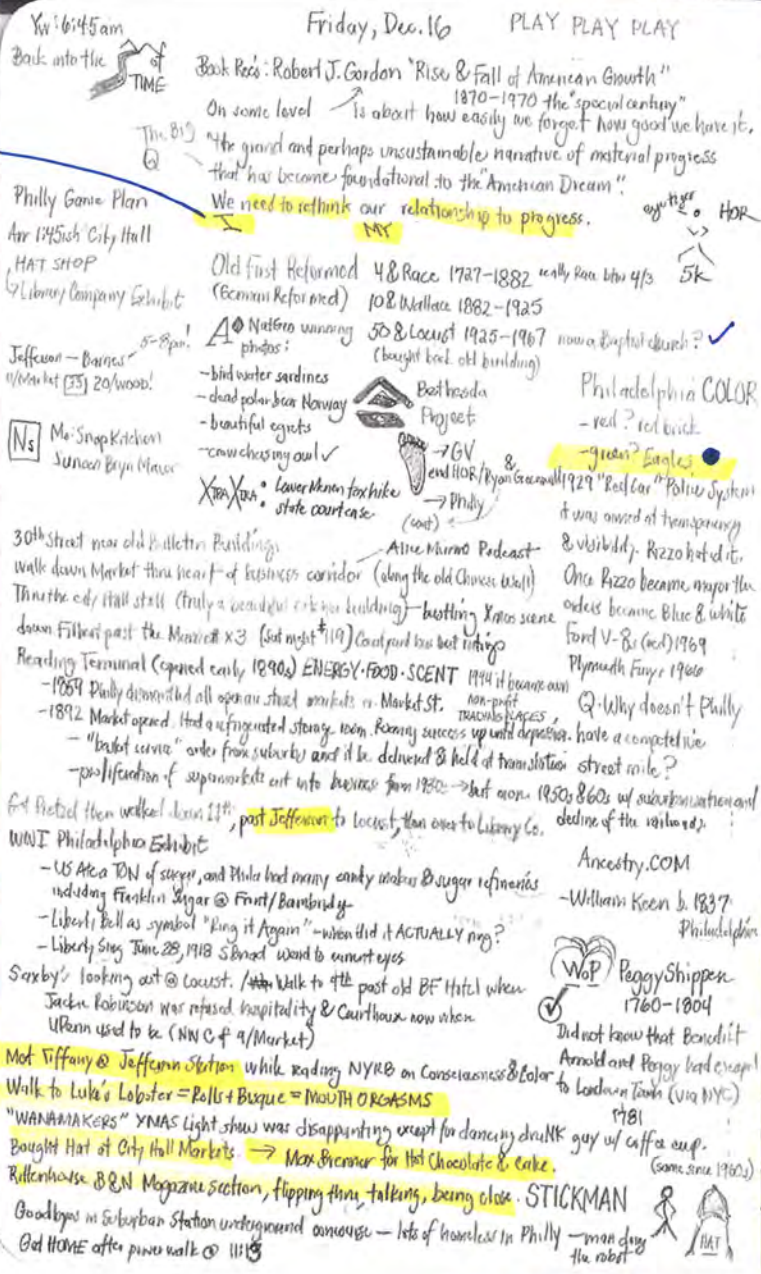 YW: 6:45am
Friday, Dec. 16
PLAY PLAY PLAY
Back into the
of
TIME
Book Rec's: Robert J. Gordon "Rise & Fall of American Growth"
1870-1970 the "special century"
On some level is about how easily we forget how good we have it.
The BIG
Q
"the grand and perhaps unsustainable narrative of material progress
that has become foundational to the "American Dream".
We need to rethink our relationship to progress.
I MY
eye tiger
HOR
5k
Philly Game Plan
Arr 1:45ish City Hall
HAT SHOP
Library Company Exhibit
5-8pm!
Jefferson - Barnes
11/Market 33 20/wood!
Ns
Me: Snap Kitchen
Suneen Bryn Mawr
Old First Reformed 4 & Race 1727-1882 really Race btw 4/3
(German Reformed) 10 & Wallace 1882-1925
50 & Locust 1925-1967 now a Baptist church? ✓
(bought back old building)
NatGeo winning
photos:
- bird water sardines
- dead polar bear Norway
- beautiful egrets
- crow chasing owl ✓
XTRA XTRA: Lower Merion fox hike
state court case
Bethesda
Project
→ GV
&
end HOR/Ryan
→ Philly
(cont)
Philadelphia COLOR
- red? red brick
- green? Eagles
1929 "Red Car" Police System
it was aimed at transparency
& visibility. Rizzo hated it.
Once Rizzo became mayor the
orders became Blue & white
Ford V-8s (red) 1969
Plymouth Furys 1966
Q. Why doesn't Philly
have a competitive
street mile?
30th Street near old Bulletin Building
Alice Munro Podcast
walk down Market thru heart of business corridor (along the old Chinese Wall)
Thru the city Hall still (truly a beautiful building) - bustling Xmas scene
down Filbert past the Marriott x3 (sat night $119) Courtyard has best ratings
Reading Terminal (opened early 1890s) ENERGY·FOOD·SCENT 1994 it became own
non-profit
TRADING PLACES
- 1859 Philly dismantled all open air street markets on Market St.
- 1892 Market opened. Had a refrigerated storage room. Roaring success up until depression.
- "basket service" order from suburbs and it'd be delivered & held at train station
- proliferation of supermarkets cut into business from 1930s → but more 1950s & 60s w/ suburbanization and
decline of the railroads.
Got Pretzel then walked down 11th, past Jefferson to Locust, then over to Library Co.
WWI Philadelphia Exhibit
- US Ate a TON of sugar, and Phila had many candy makers & sugar refineries
including Franklin Sugar @ Front/Bainbridge
- Liberty Bell as symbol "Ring it Again" - when did it ACTUALLY ring?
- Liberty Sing June 28, 1918 weird to current eyes
Ancestry.COM
- William Keen b. 1837
Philadelphia
Saxby's looking out @ Locust. / Walk to 9th past old BF Hotel when
Jackie Robinson was refused hospitality & Courthouse now when
UPenn used to be (NNC of 9/Market)
WoP
Peggy Shippen
1760-1804
Did not know that Benedict
Arnold and Peggy had escaped
to London (via NYC)
1781
Met Tiffany @ Jefferson Station while reading NYRB on Consciousness & Color
Walk to Luke's Lobster = Rolls + Bisque = MOUTH ORGASMS
"WANAMAKERS" XMAS Light show was disappointing except for dancing druNK guy w/ coffee cup.
(same since 1960s)
Bought Hat at City Hall Markets → Max Brenner for Hot Chocolate & Cake.
Rittenhouse B&N Magazine Section, flipping thru, talking, being close. STICKMAN
Goodbyes in Suburban Station underground concourse - lots of homeless in Philly - man doing
the robot
HAT
Got HOME after power walk @ 11:13